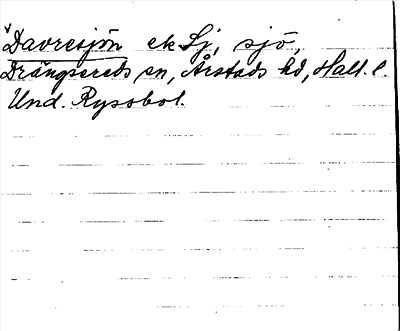 Davresjön ek Sj, sjö,
Drängsereds sn, Årstads hd, Hall. l.
Und. Rysobol.